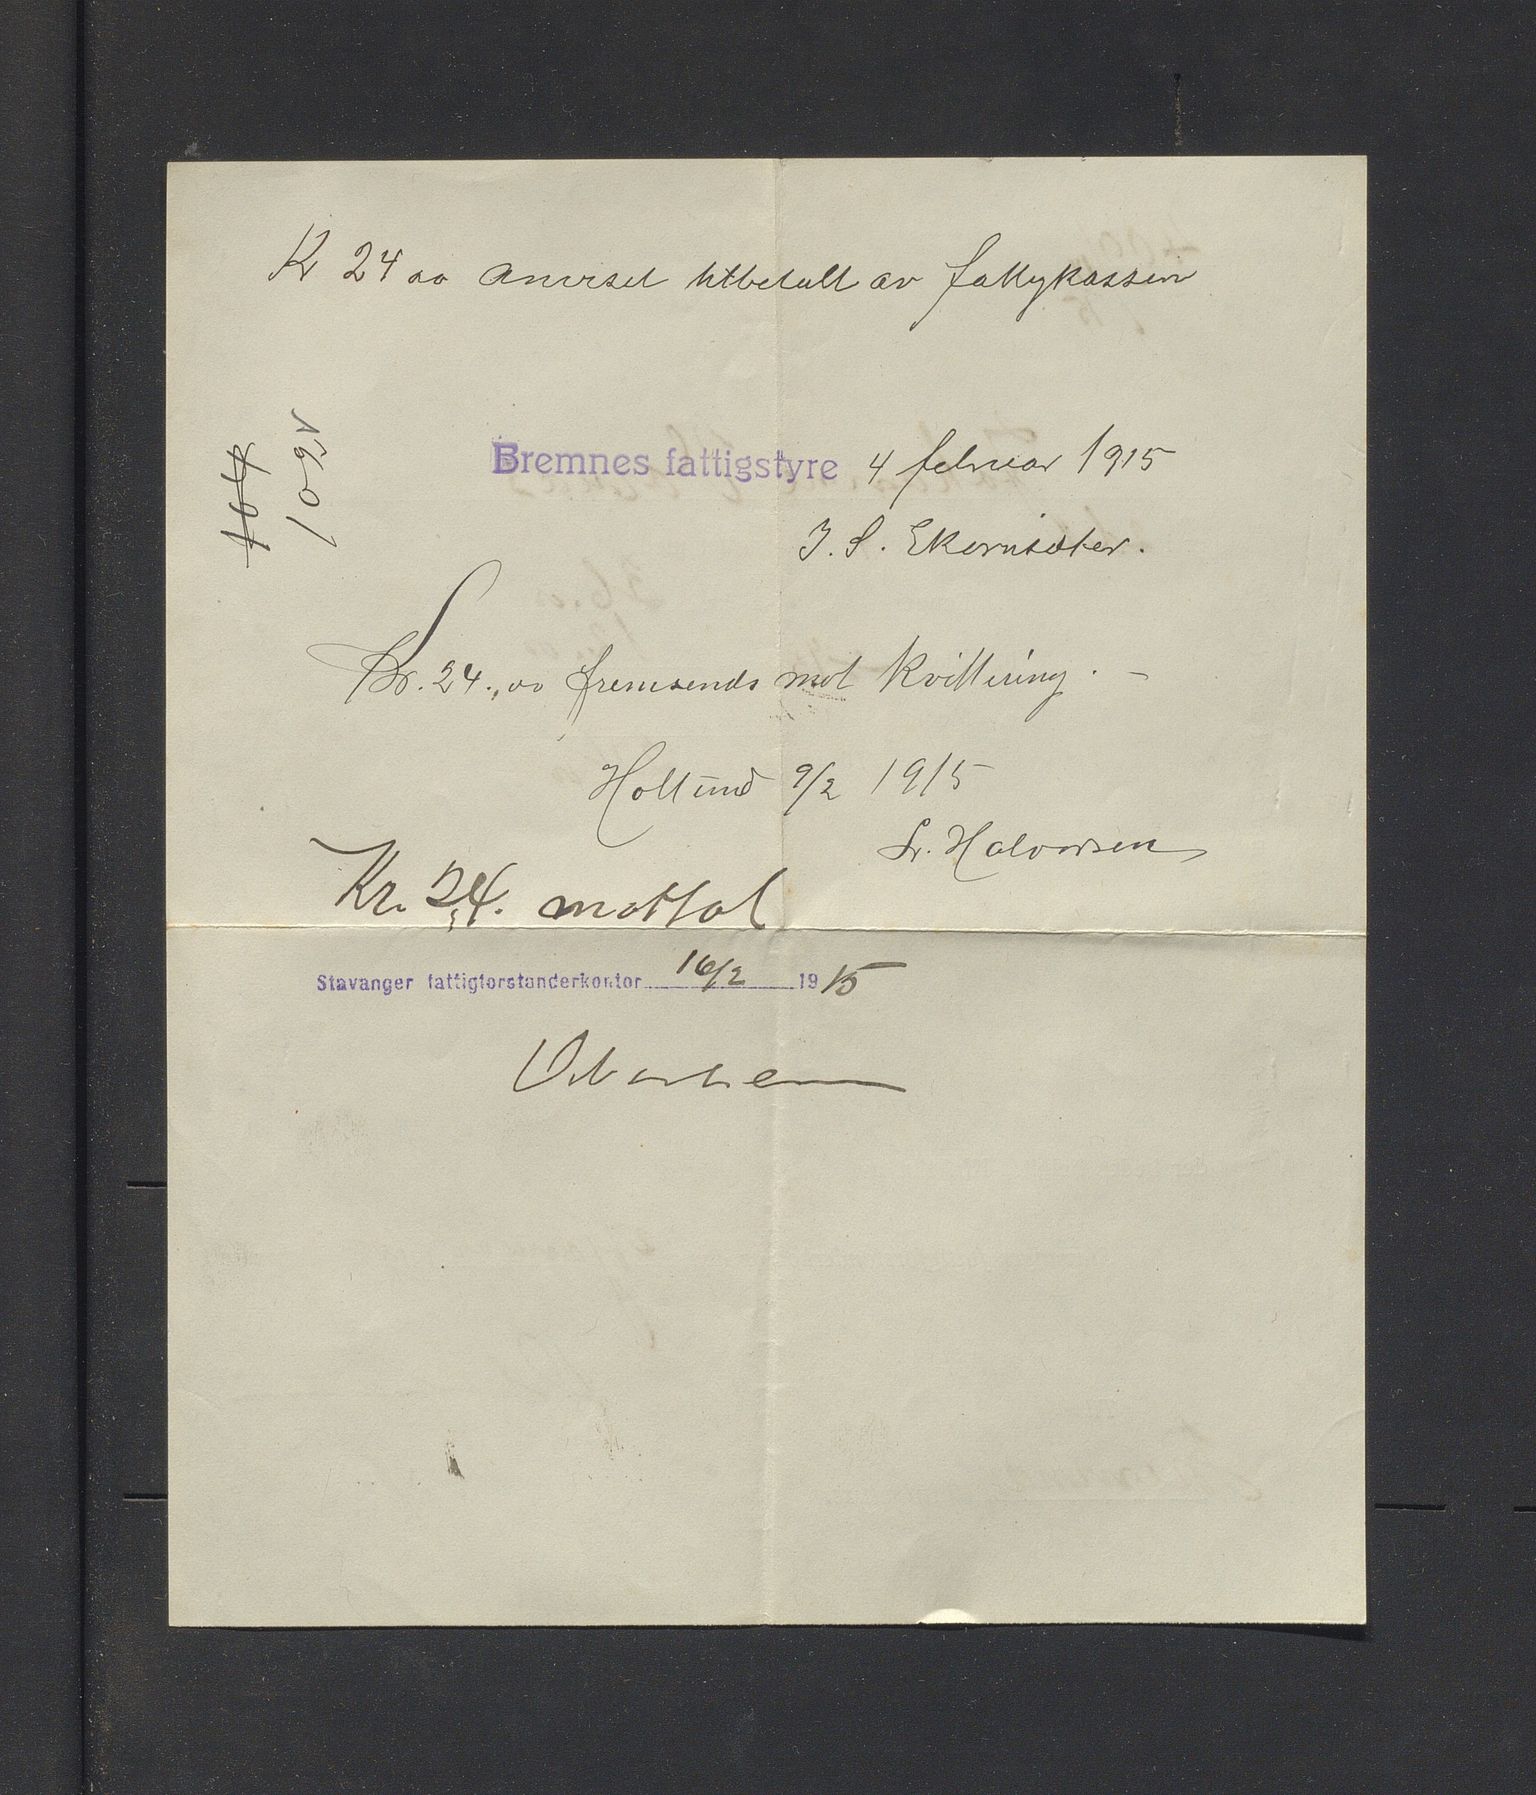 Kr 24 oo anvirset utbetalt av fattigkassen
Bremnes fattigstyre 4 februar 1915
J. S. Ekornsæter.
104
109
Kr. 24.,oo fremsends mot kvittering. –
Hollund 9/2 1915
Halvorsen
Kr. 24. mottat
Stavanger fattigforstanderkontor 16/2 1915